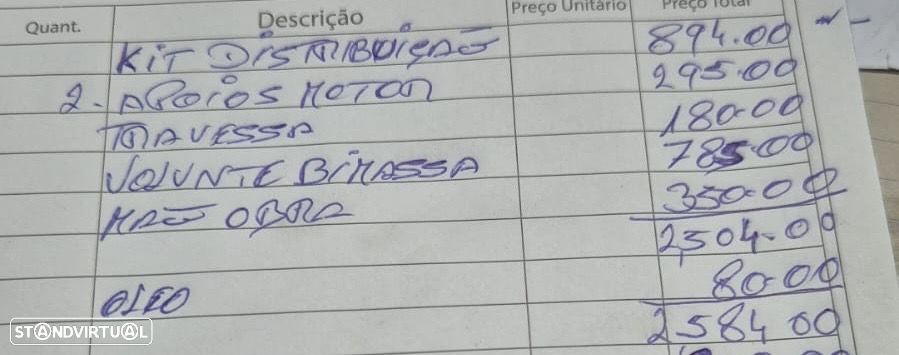 Quant. Descrição Preço Unitário Preço Total
KIT DISTRIBUIÇAO 894.00
2. APOIOS MOTOR 295.00
TRAVESSA 180.00
VOLUNTE BIMASSA 785.00
MAO OBRA 350.00
2,504.00
OLEO 80.00
2584 00
STANDVIRTUAL